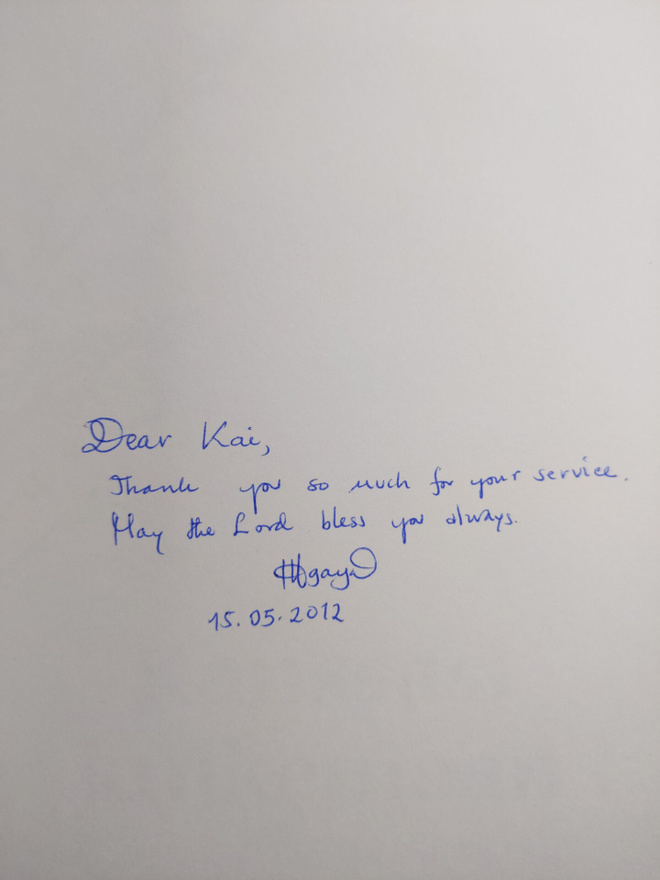 Dear Kai,
Thank you so much for your service.
May the Lord bless you always.
15.05.2012